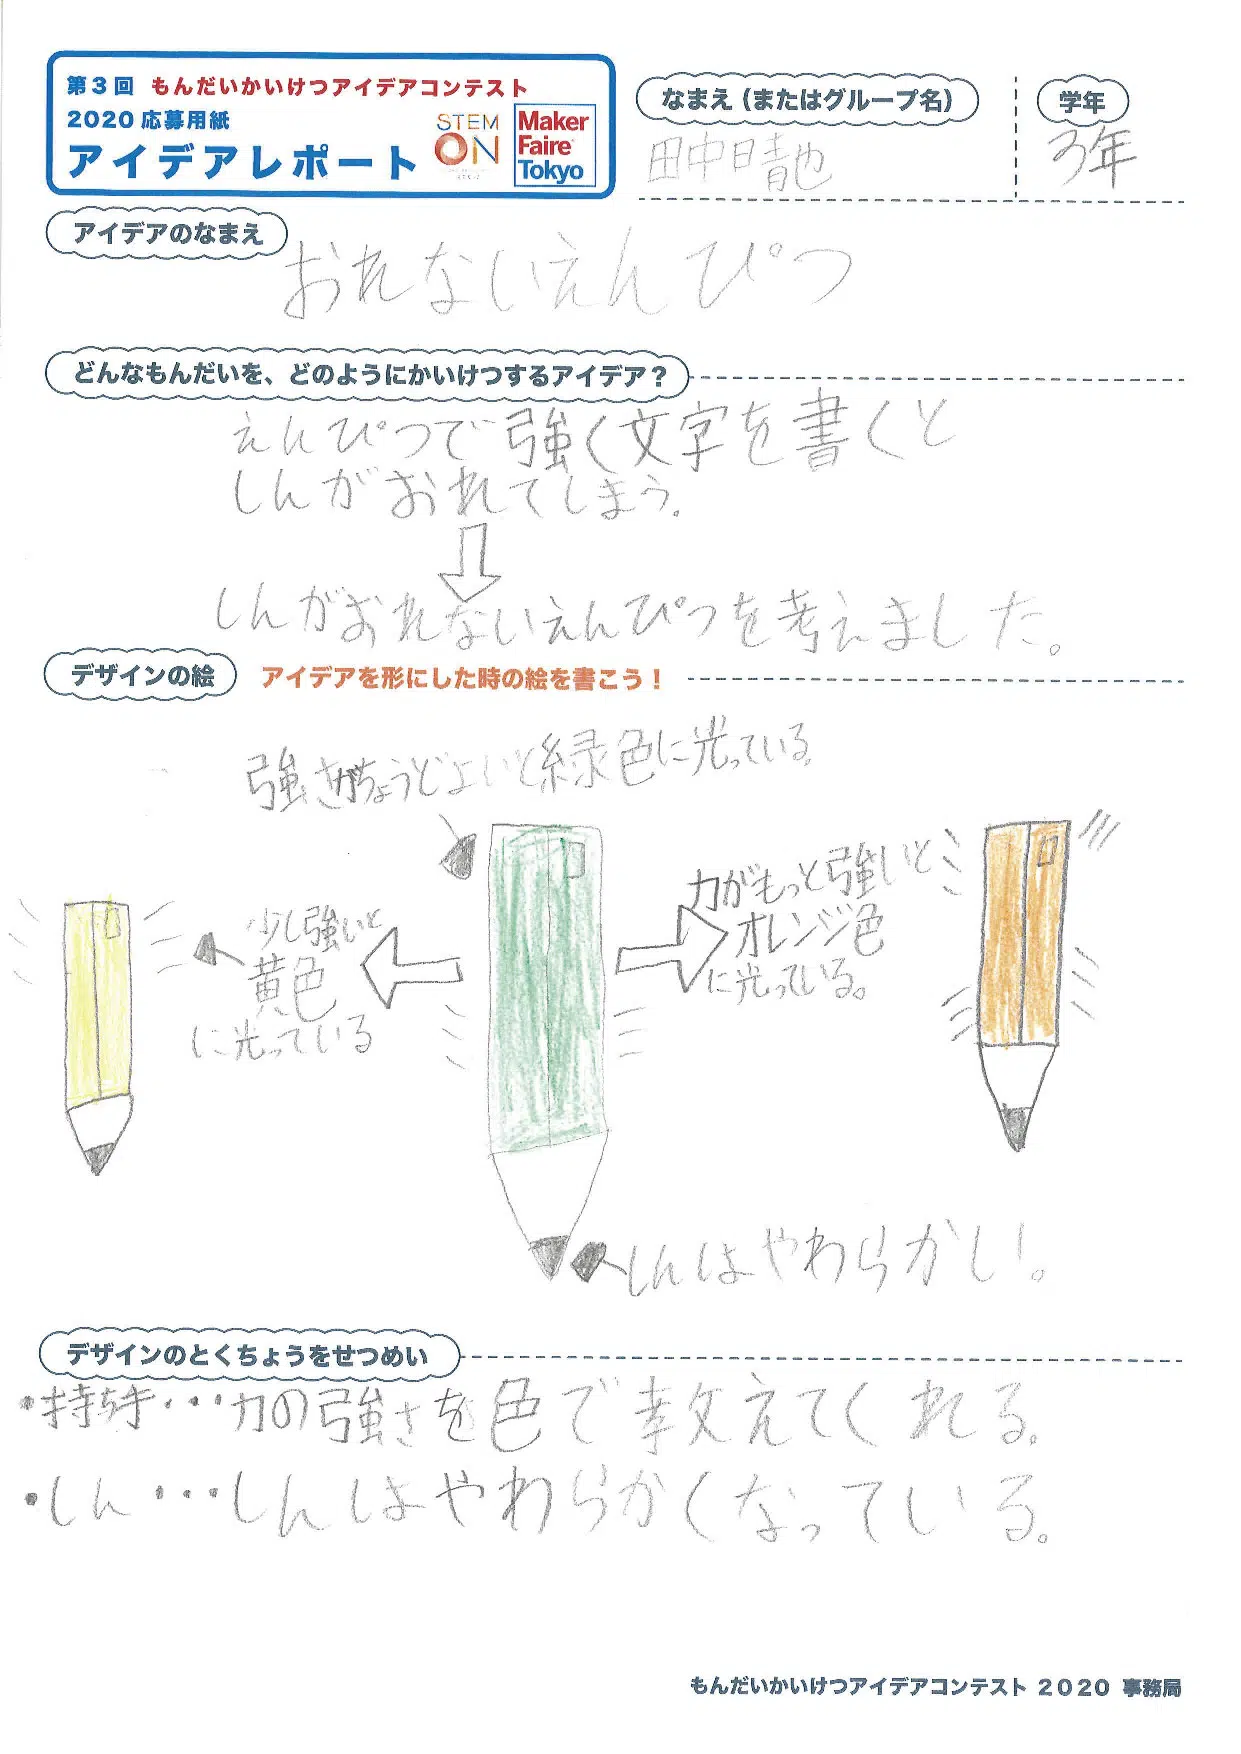 第3回 もんだいかいけつアイデアコンテスト
2020応募用紙
アイデアレポート
STEM
ON
Maker
Faire
Tokyo
なまえ(またはグループ名)
田中晴也
学年
3年
アイデアのなまえ
おれないえんぴつ
どんなもんだいを、どのようにかいけつするアイデア？
えんぴつで強く文字を書くと
しんがおれてしまう。
しんがおれないえんぴつを考えました。
デザインの絵
アイデアを形にした時の絵を書こう！
強さがちょうどよいと緑色に光っている。
少し強いと
黄色
に光っている
力がもっと強いと
オレンジ色
に光っている。
しんはやわらかい。
デザインのとくちょうをせつめい
・持ち手・・・力の強さを色で教えてくれる。
・しん・・・しんはやわらかくなっている。
もんだいかいけつアイデアコンテスト 2020 事務局